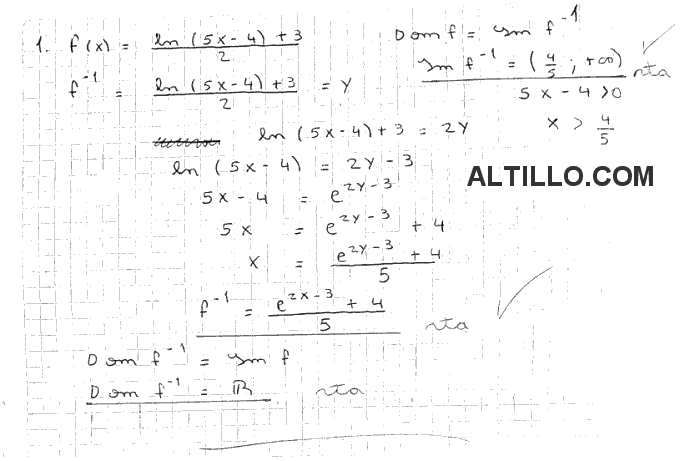 1. f(x) = (ln (5x-4) + 3)/2
f⁻¹ = (ln (5x-4) + 3)/2 = y
ln (5x-4) + 3 = 2y
ln (5x-4) = 2y - 3
5x - 4 = e^(2y-3)
5x = e^(2y-3) + 4
x = (e^(2y-3) + 4)/5
f⁻¹ = (e^(2x-3) + 4)/5 rta
Dom f⁻¹ = Im f
Dom f⁻¹ = ℝ rta
Dom f = Im f⁻¹
Im f⁻¹ = (4/5 ; +∞) rta
5x - 4 > 0
x > 4/5
ALTILLO.COM